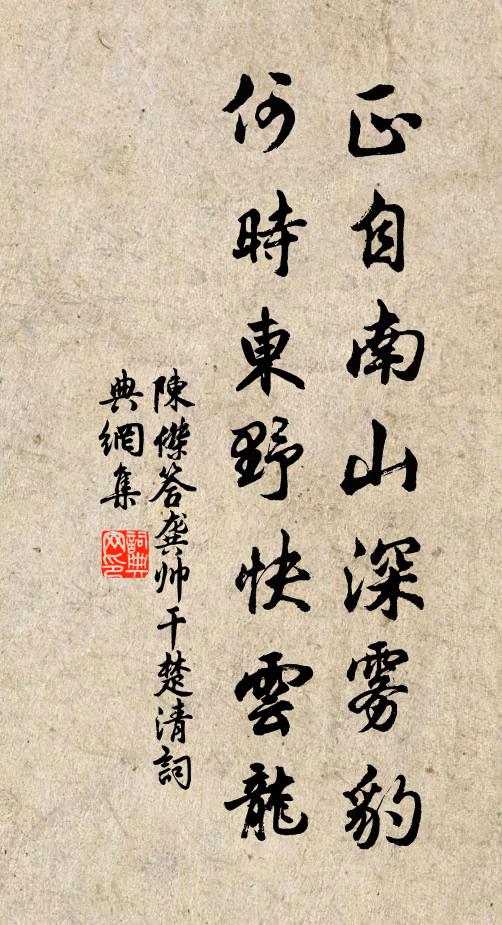 正自南山深雾豹
何時東野快雲龍
陳傑答龔帅干楚清詞
典網集
詞典
网印